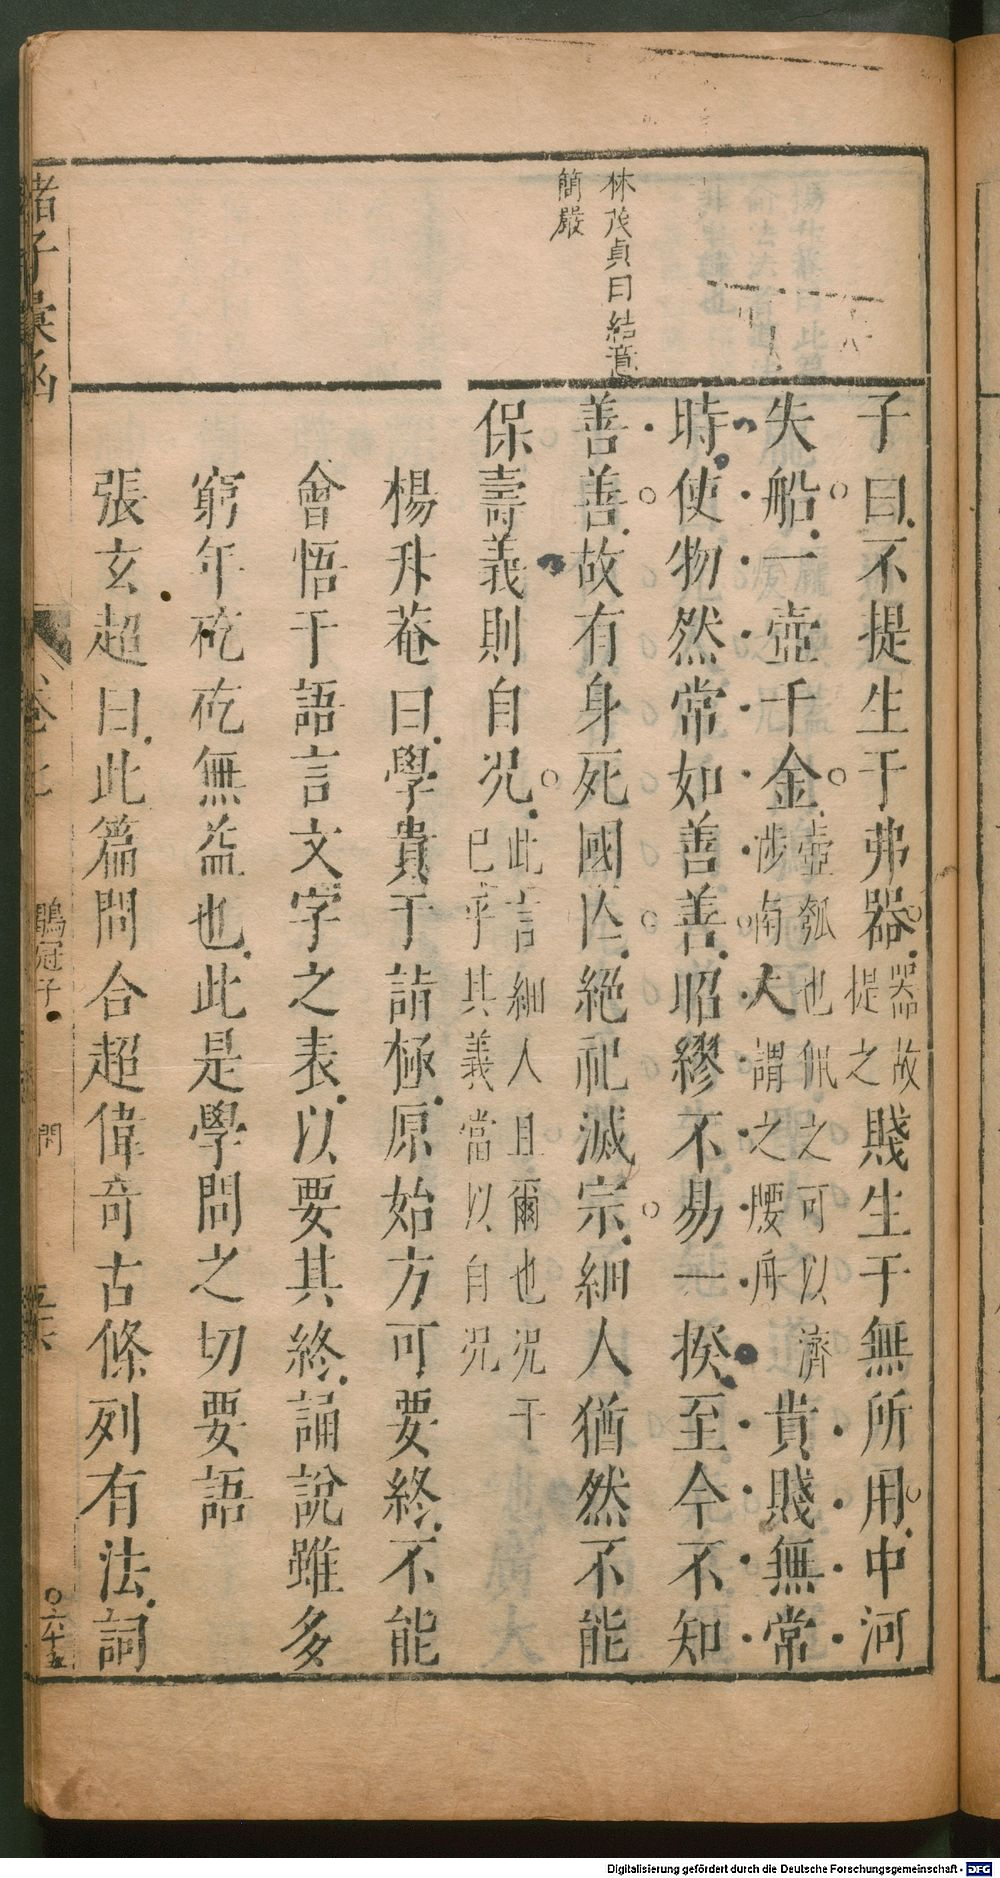 林茂貞曰結意
簡嚴
子曰不提生于弗器器故提之賤生于無所用中河
失船一壺千金壺瓠也佩之可以濟涉南人謂之腰舟貴賤無常
時使物然常如善善昭繆不易一揆至今不知
善善故有身死國亾絕祀滅宗細人猶然不能
保壽義則自況此言細人且爾也况于巳乎其義當以自况
楊升菴曰學貴于詣極原始方可要終不能
會悟于語言文字之表以要其終誦說雖多
窮年矻矻無益也此是學問之切要語
張玄超曰此篇問合超偉奇古條列有法詞
諸子彙函
鶡冠子
六十五
Digitalisierung gefördert durch die Deutsche Forschungsgemeinschaft - DFG